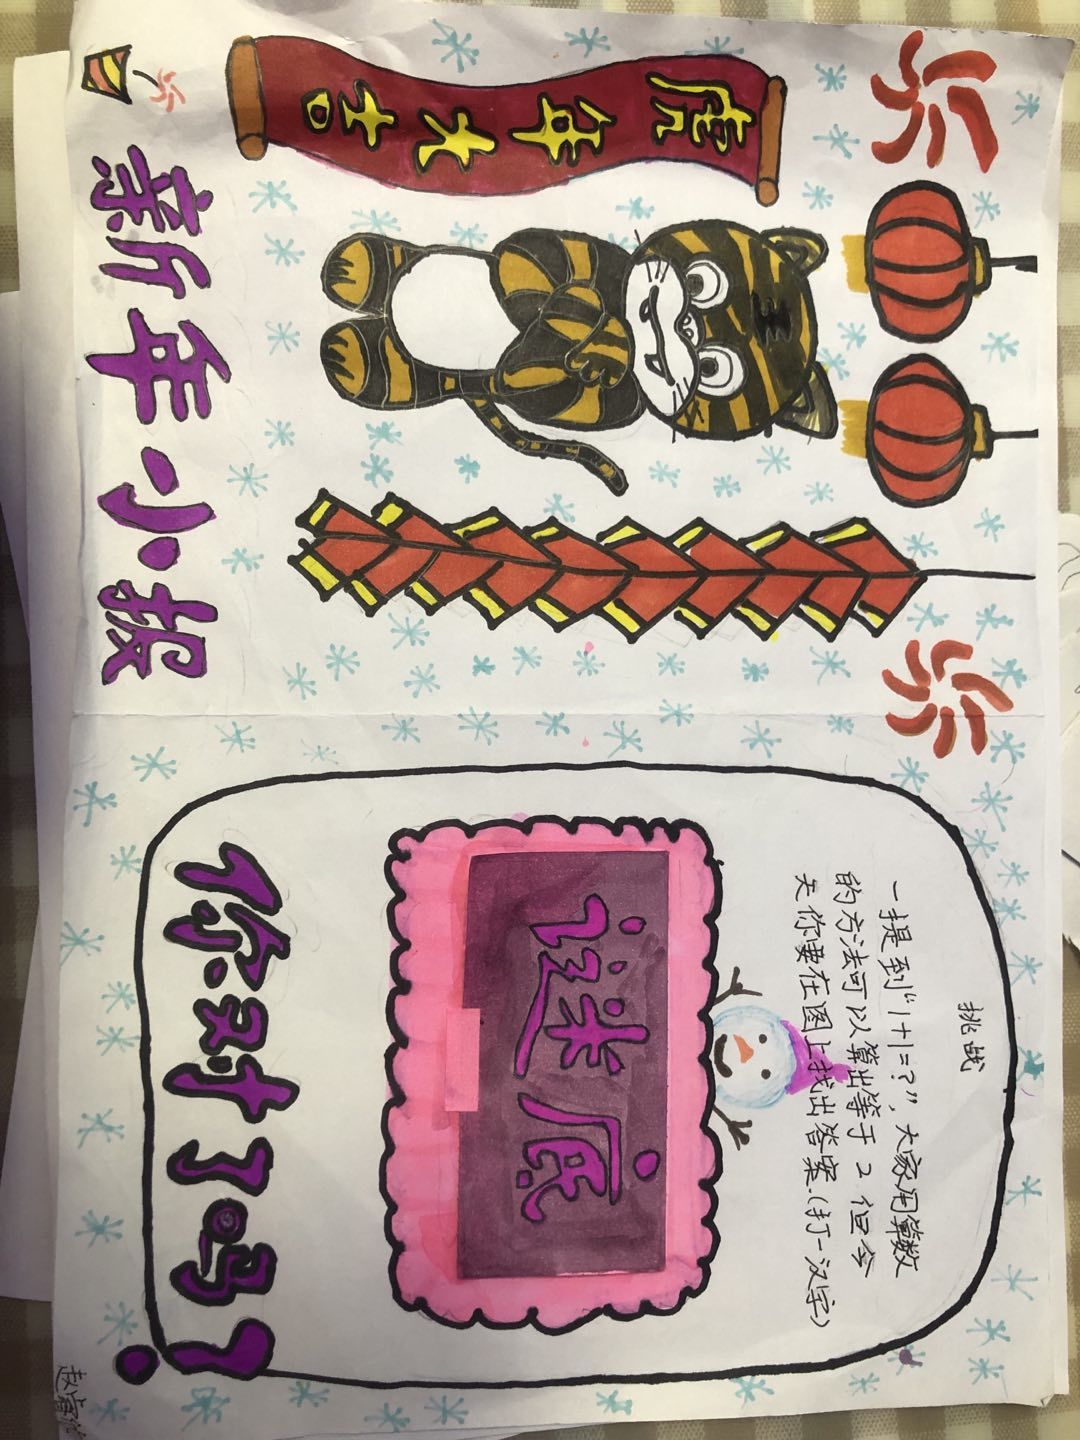 虎年大吉
新年小报
挑战
一提到“1+1=?”，大家用算数
的方法可以算出等于2 但今
天你要在图上找出答案.(打一汉字)
谜底
你对了吗?